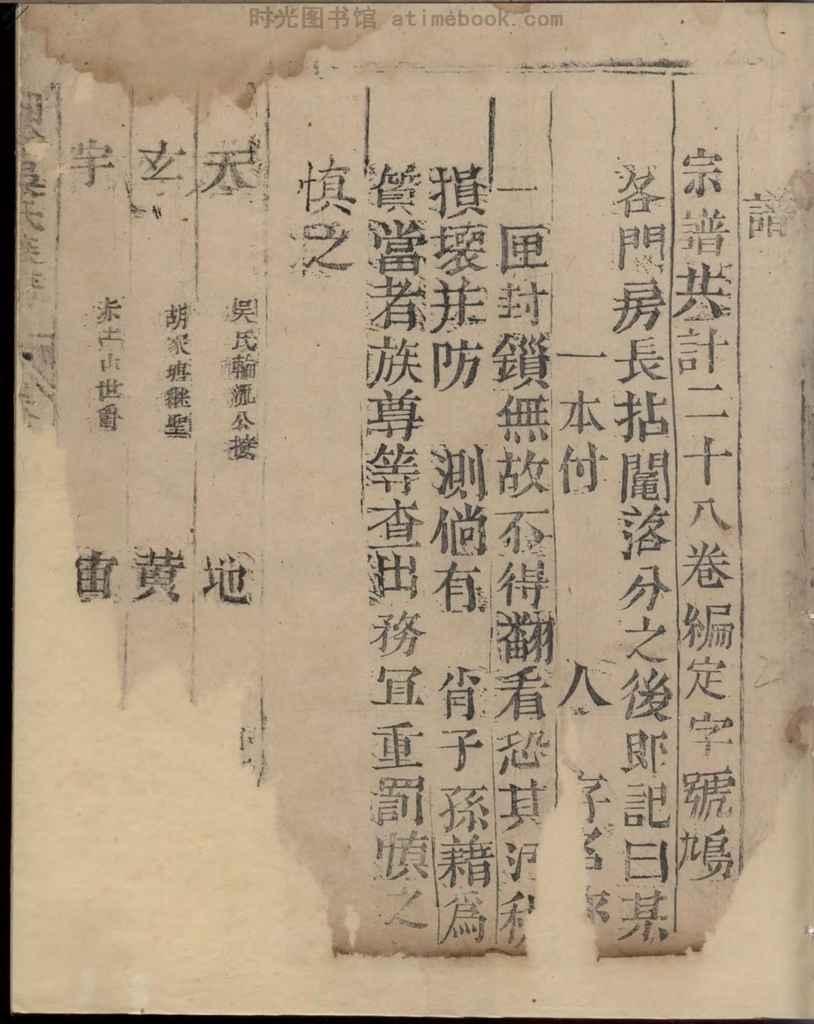 时光图书馆 atimebook.com
譜
宗譜共計二十八卷編定字號鳩
各門房長拈鬮落分之後即記曰某
一本付 人 字名
一匣封鎖無故不得翻看恐其
損壞并防 測倘有 肖子孫藉為
質當者族尊等查出務宜重罰慎之
慎之
天 吳氏輪流公接 地
玄 胡家塘繼聖 黄
宇 世爵 宙
吳氏